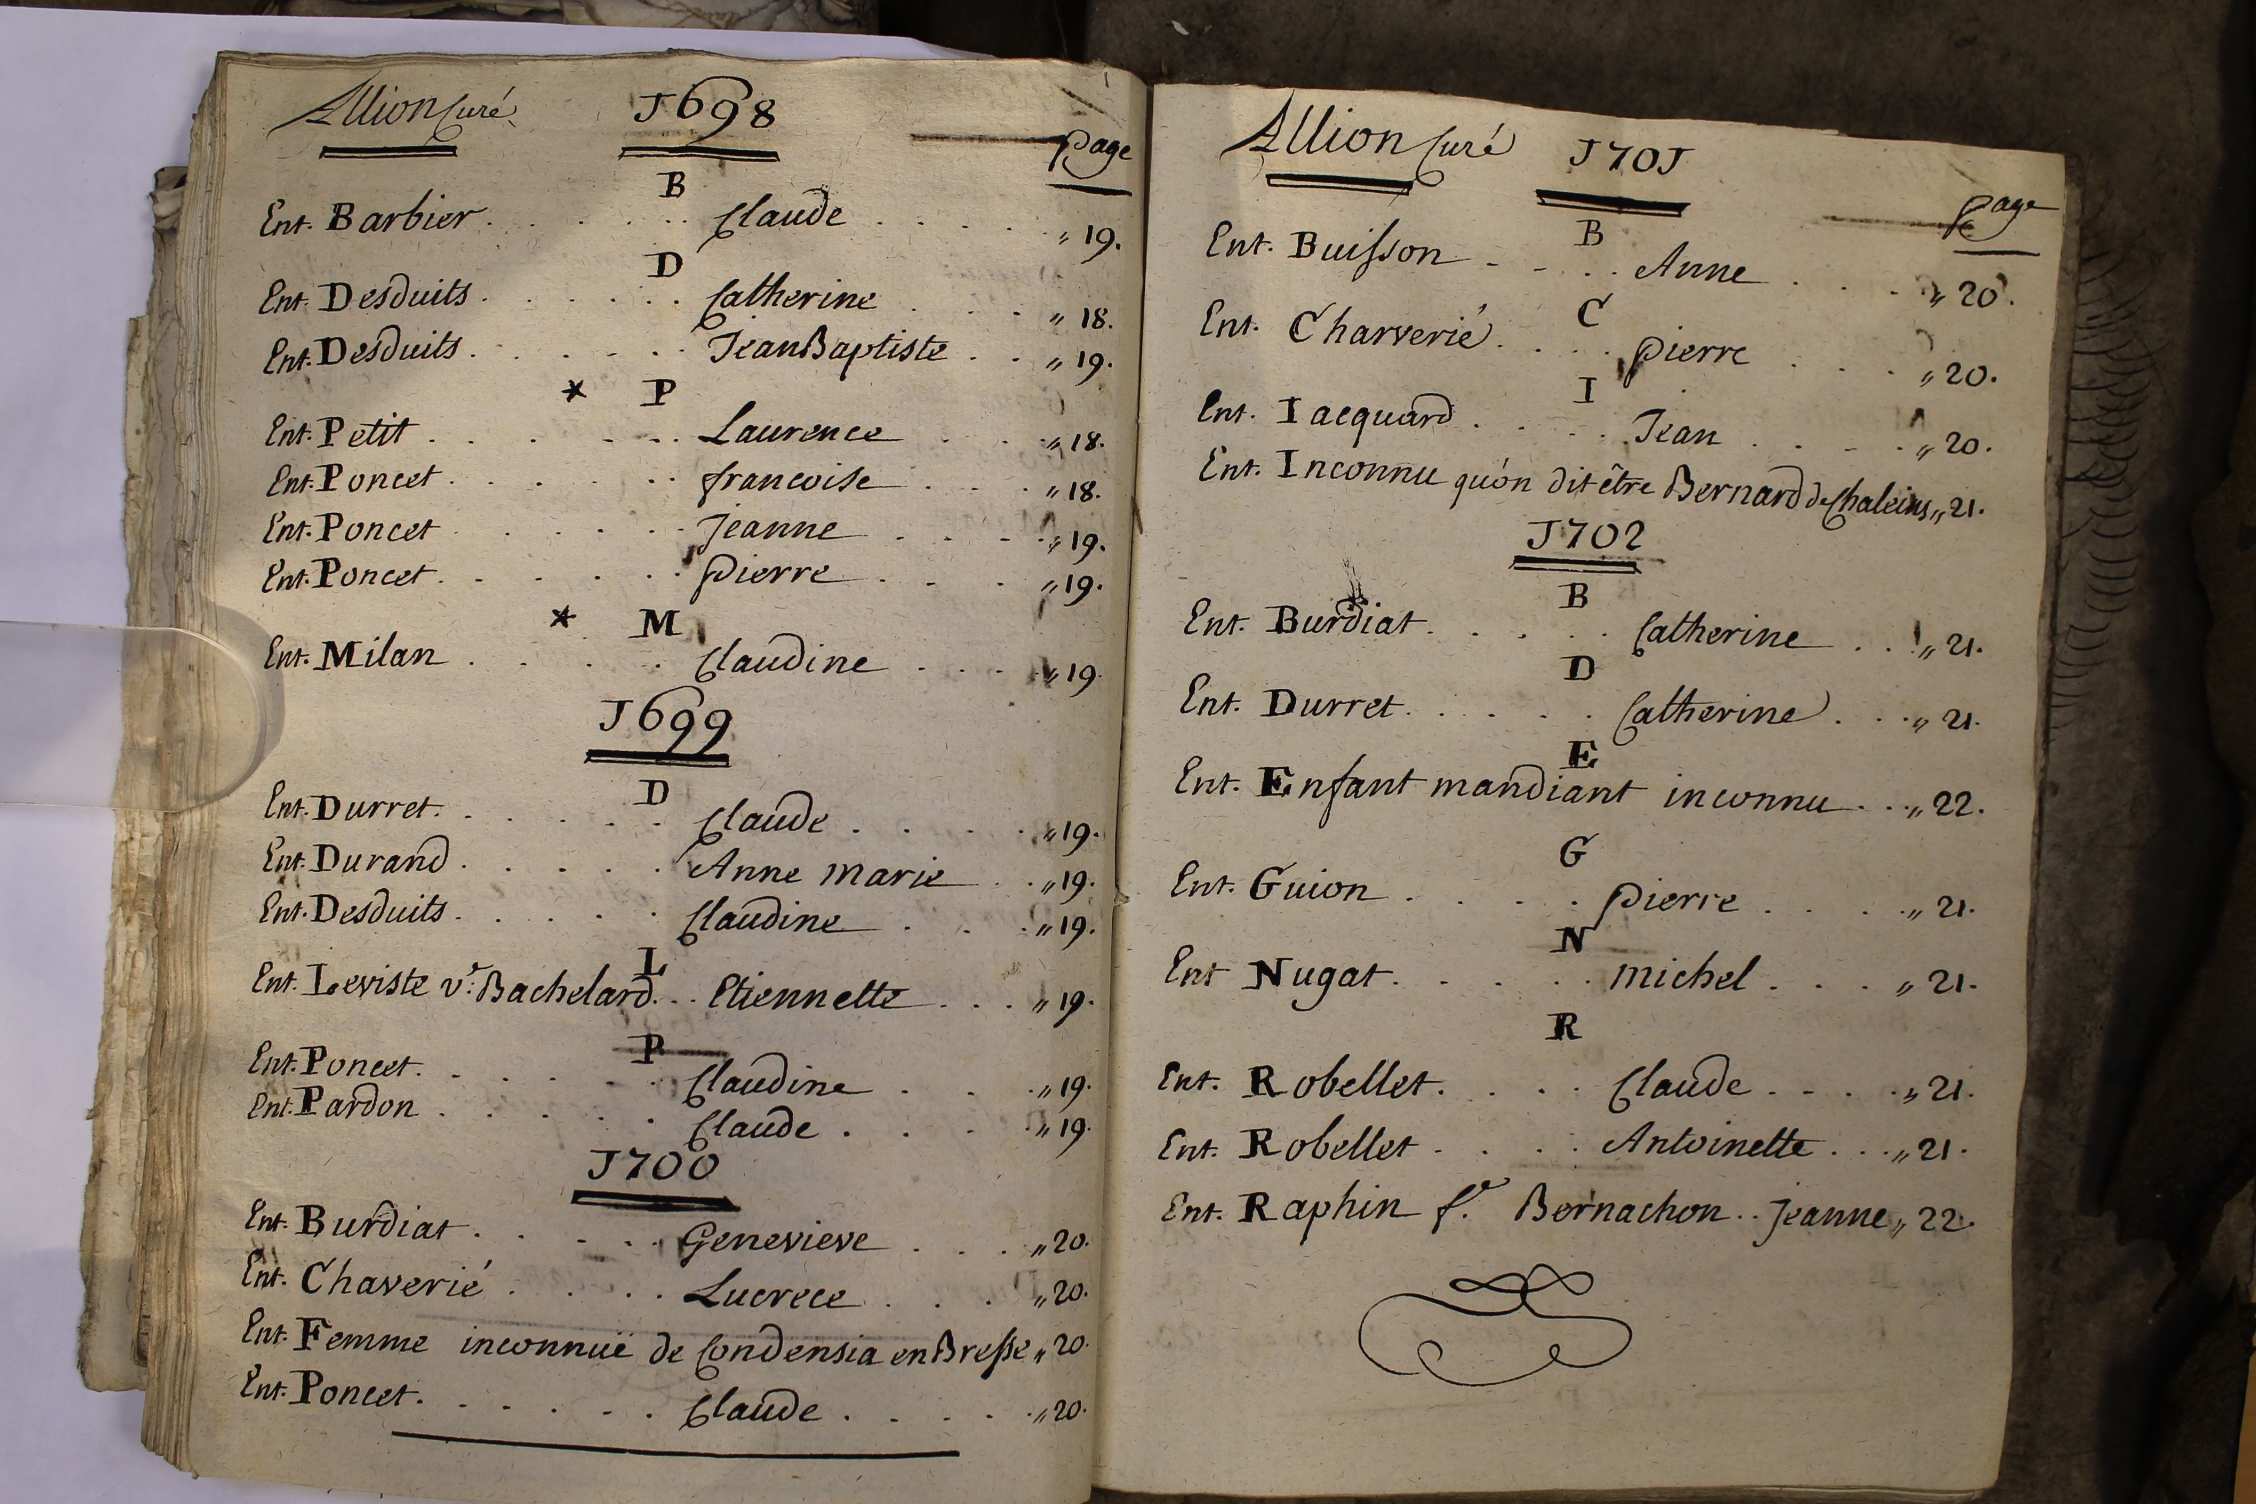 Allion Curé 1698
Page
B
Ent. Barbier . . . . . . Claude . . . . . „ 19.
D
Ent. Desduits . . . . . . Catherine . . . . „ 18.
Ent. Desduits . . . . . . Jean Baptiste . . „ 19.
* P
Ent. Petit . . . . . . Laurence . . . „ 18.
Ent. Poncet . . . . . . francoise . . . „ 18.
Ent. Poncet . . . . . Jeanne . . . . „ 19.
Ent. Poncet . . . . . . pierre . . . . „ 19.
* M
Ent. Milan . . . . . Claudine . . . . „ 19.
1699
D
Ent. Durret . . . . . . Claude . . . . . „ 19.
Ent. Durand . . . . . Anne marie . . „ 19.
Ent. Desduits . . . . . . Claudine . . . „ 19.
L
Ent. Leviste ve. Bachelard . . . Etiennette . . . „ 19.
P
Ent. Poncet . . . . . . Claudine . . . „ 19.
Ent. Pardon . . . . . Claude . . . . „ 19.
1700
Ent. Burdiat . . . . . Genevieve . . . „ 20.
Ent. Chaverié . . . . Lucrece . . . „ 20.
Ent. Femme inconnuë de Condensia en Bresse „ 20.
Ent. Poncet . . . . . . Claude . . . . . „ 20.
Allion Curé 1701
page
B
Ent. Buisson . . . . Anne . . . . „ 20.
C
Ent. Charverié . . . . pierre . . . . „ 20.
I
Ent. Iacquard . . . . . Jean . . . . „ 20.
Ent. Inconnu qu'on dit être Bernard de Chaleins „ 21.
1702
B
Ent. Burdiat . . . . . Catherine . . . „ 21.
D
Ent. Durret . . . . . Catherine . . . „ 21.
E
Ent. Enfant mandiant inconnu . . . „ 22.
G
Ent. Guion . . . . . pierre . . . . „ 21.
N
Ent Nugat . . . . . . michel . . . . „ 21.
R
Ent. Robellet . . . . Claude . . . . „ 21.
Ent. Robellet . . . . Antoinette . . . „ 21.
Ent. Raphin fe. Bernachon . . Jeanne „ 22.